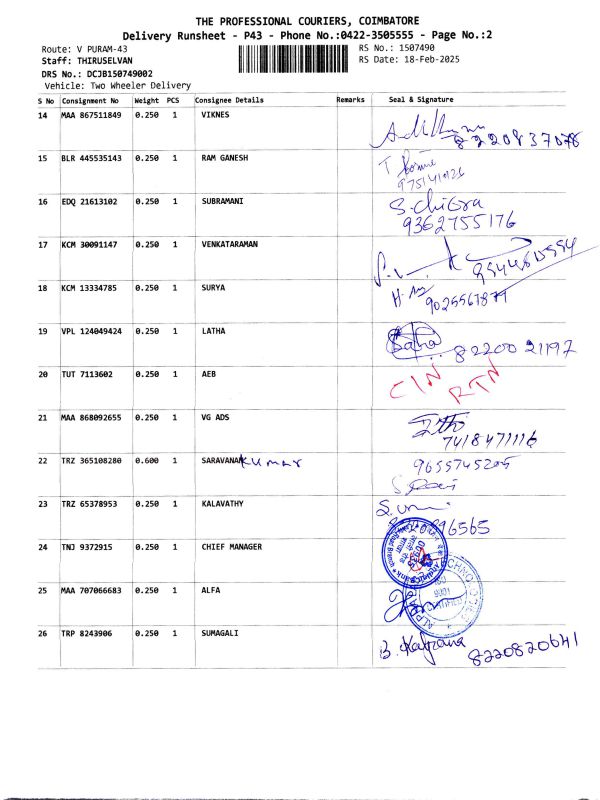 THE PROFESSIONAL COURIERS, COIMBATORE
Delivery Runsheet - P43 - Phone No.:0422-3505555 - Page No.:2
Route: V PURAM-43 RS No.: 1507490
Staff: THIRUSELVAN RS Date: 18-Feb-2025
DRS No.: DCJB150749002
Vehicle: Two Wheeler Delivery
S No Consignment No Weight PCS Consignee Details Remarks Seal & Signature
14 MAA 867511849 0.250 1 VIKNES
8220837078
15 BLR 445535143 0.250 1 RAM GANESH
16 EDQ 21613102 0.250 1 SUBRAMANI S.chitra
9362755176
17 KCM 30091147 0.250 1 VENKATARAMAN
18 KCM 13334785 0.250 1 SURYA
9025567879
19 VPL 124049424 0.250 1 LATHA
8220021197
20 TUT 7113602 0.250 1 AEB CIN RTN
21 MAA 868092655 0.250 1 VG ADS
7418471116
22 TRZ 365108280 0.600 1 SARAVANAKumar 9655745205
23 TRZ 65378953 0.250 1 KALAVATHY
24 TNJ 9372915 0.250 1 CHIEF MANAGER
25 MAA 707066683 0.250 1 ALFA
26 TRP 8243906 0.250 1 SUMAGALI
8220820641